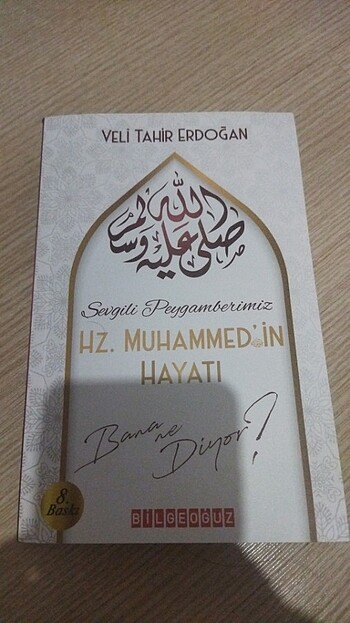 VELİ TAHİR ERDOĞAN
صلى الله عليه وسلم
Sevgili Peygamberimiz
HZ. MUHAMMED'İN
HAYATI
Bana ne
Diyor?
8.
Baskı
BİLGEOĞUZ